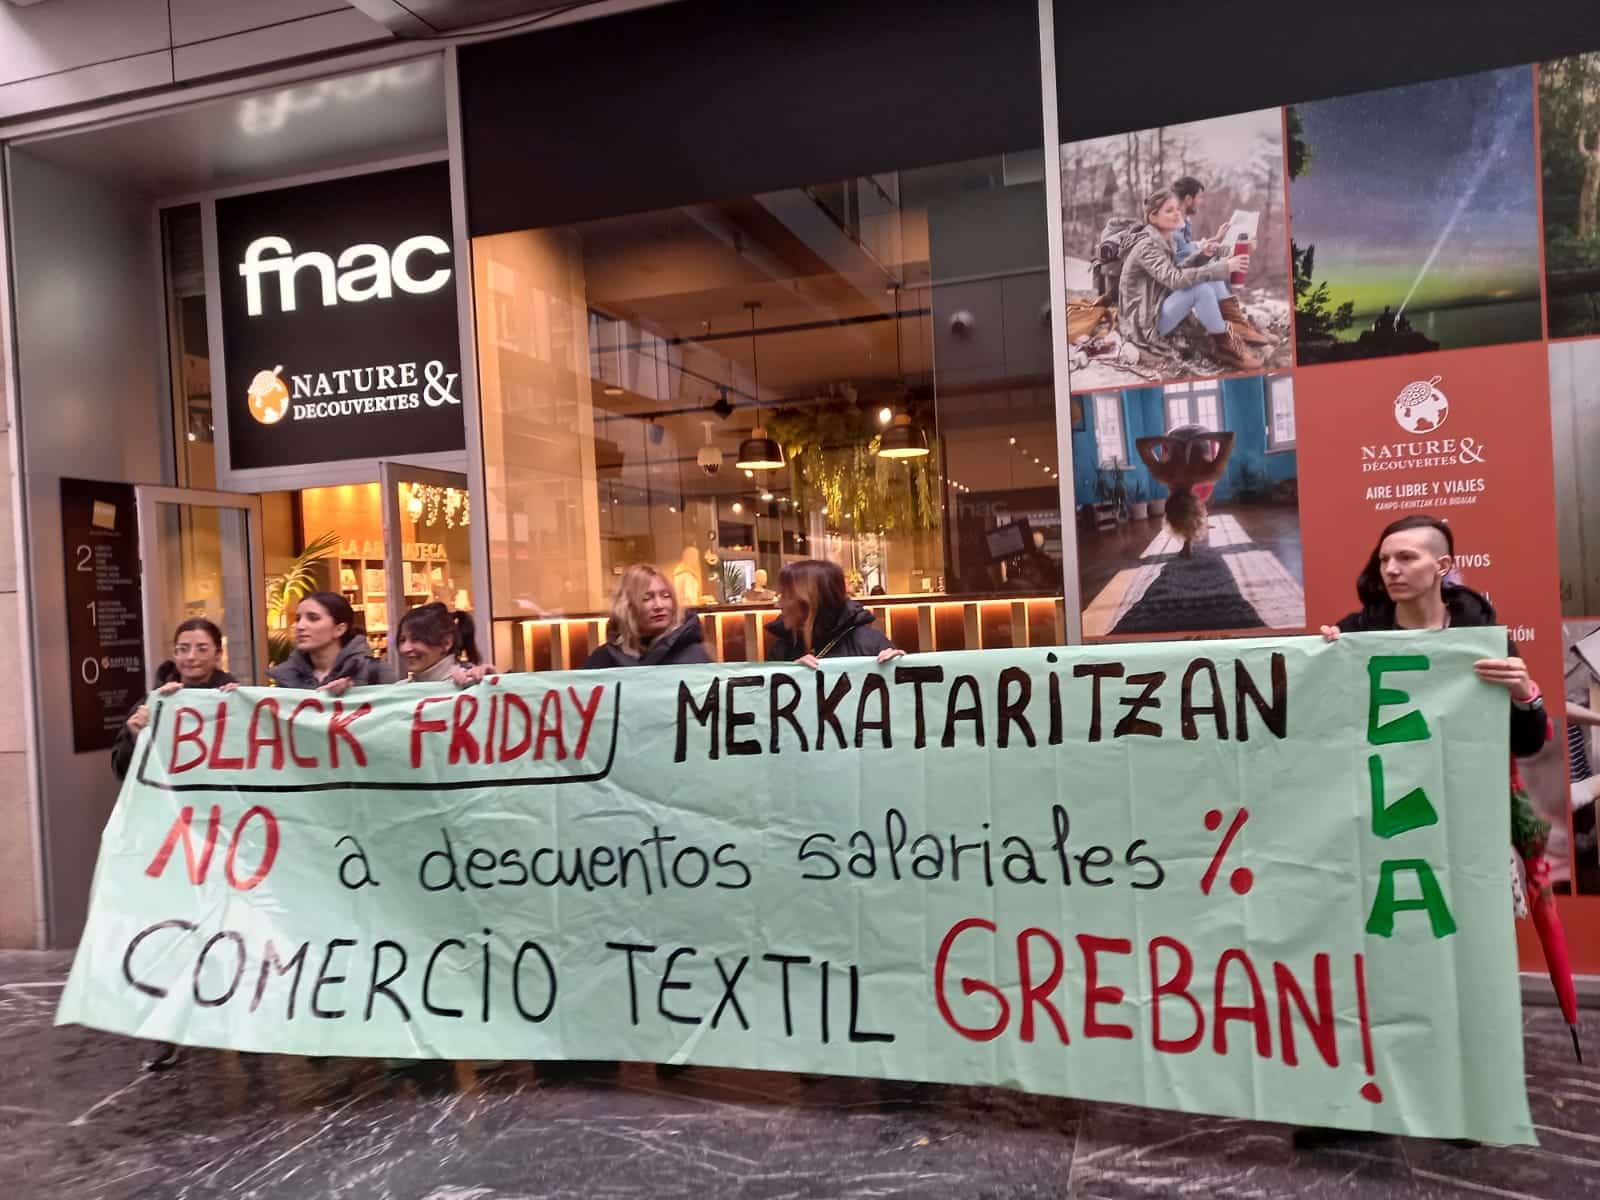 fnac
NATURE &
DECOUVERTES
LA
NATURE &
DÉCOUVERTES
AIRE LIBRE Y VIAJES
KANPO-EKINTZAK ETA BIDAIAK
2
1
0
fnac
BLACK FRIDAY MERKATARITZAN
NO a descuentos salariales %
COMERCIO TEXTIL GREBAN!
ELA